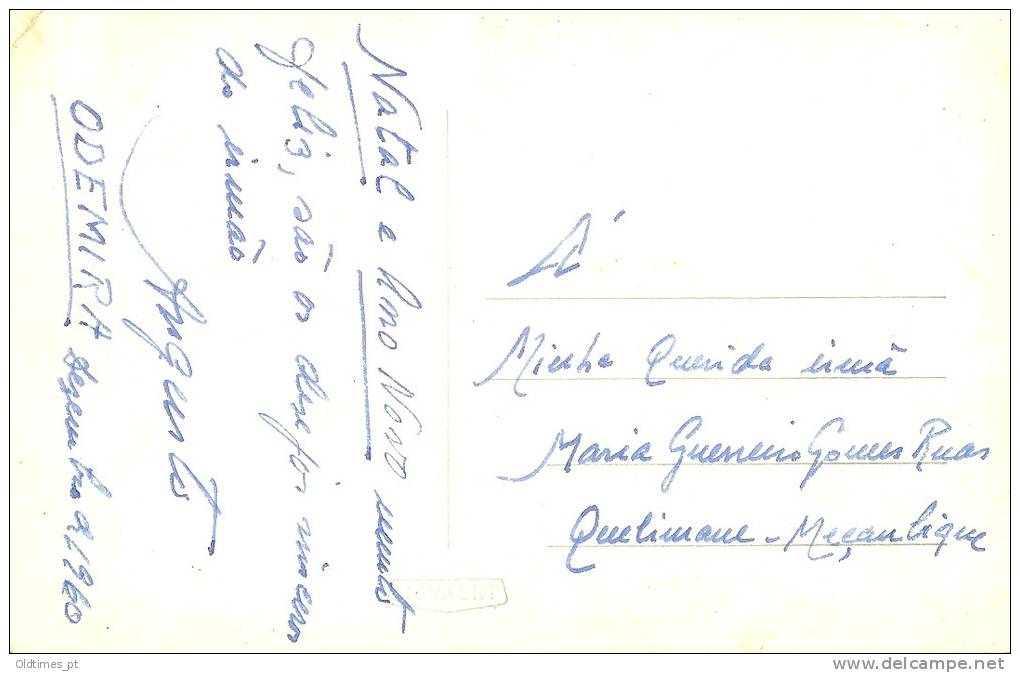 Natal e Ano Novo muito
feliz, são os desejos sinceros
do irmão
Augusto
ODEMIRA Dezembro 9/1960
À
Minha Querida irmã
Maria Guerreiro Gomes Ruas
Quelimane - Moçambique
GEVAERT
Oldtimes_pt
delcampe.net